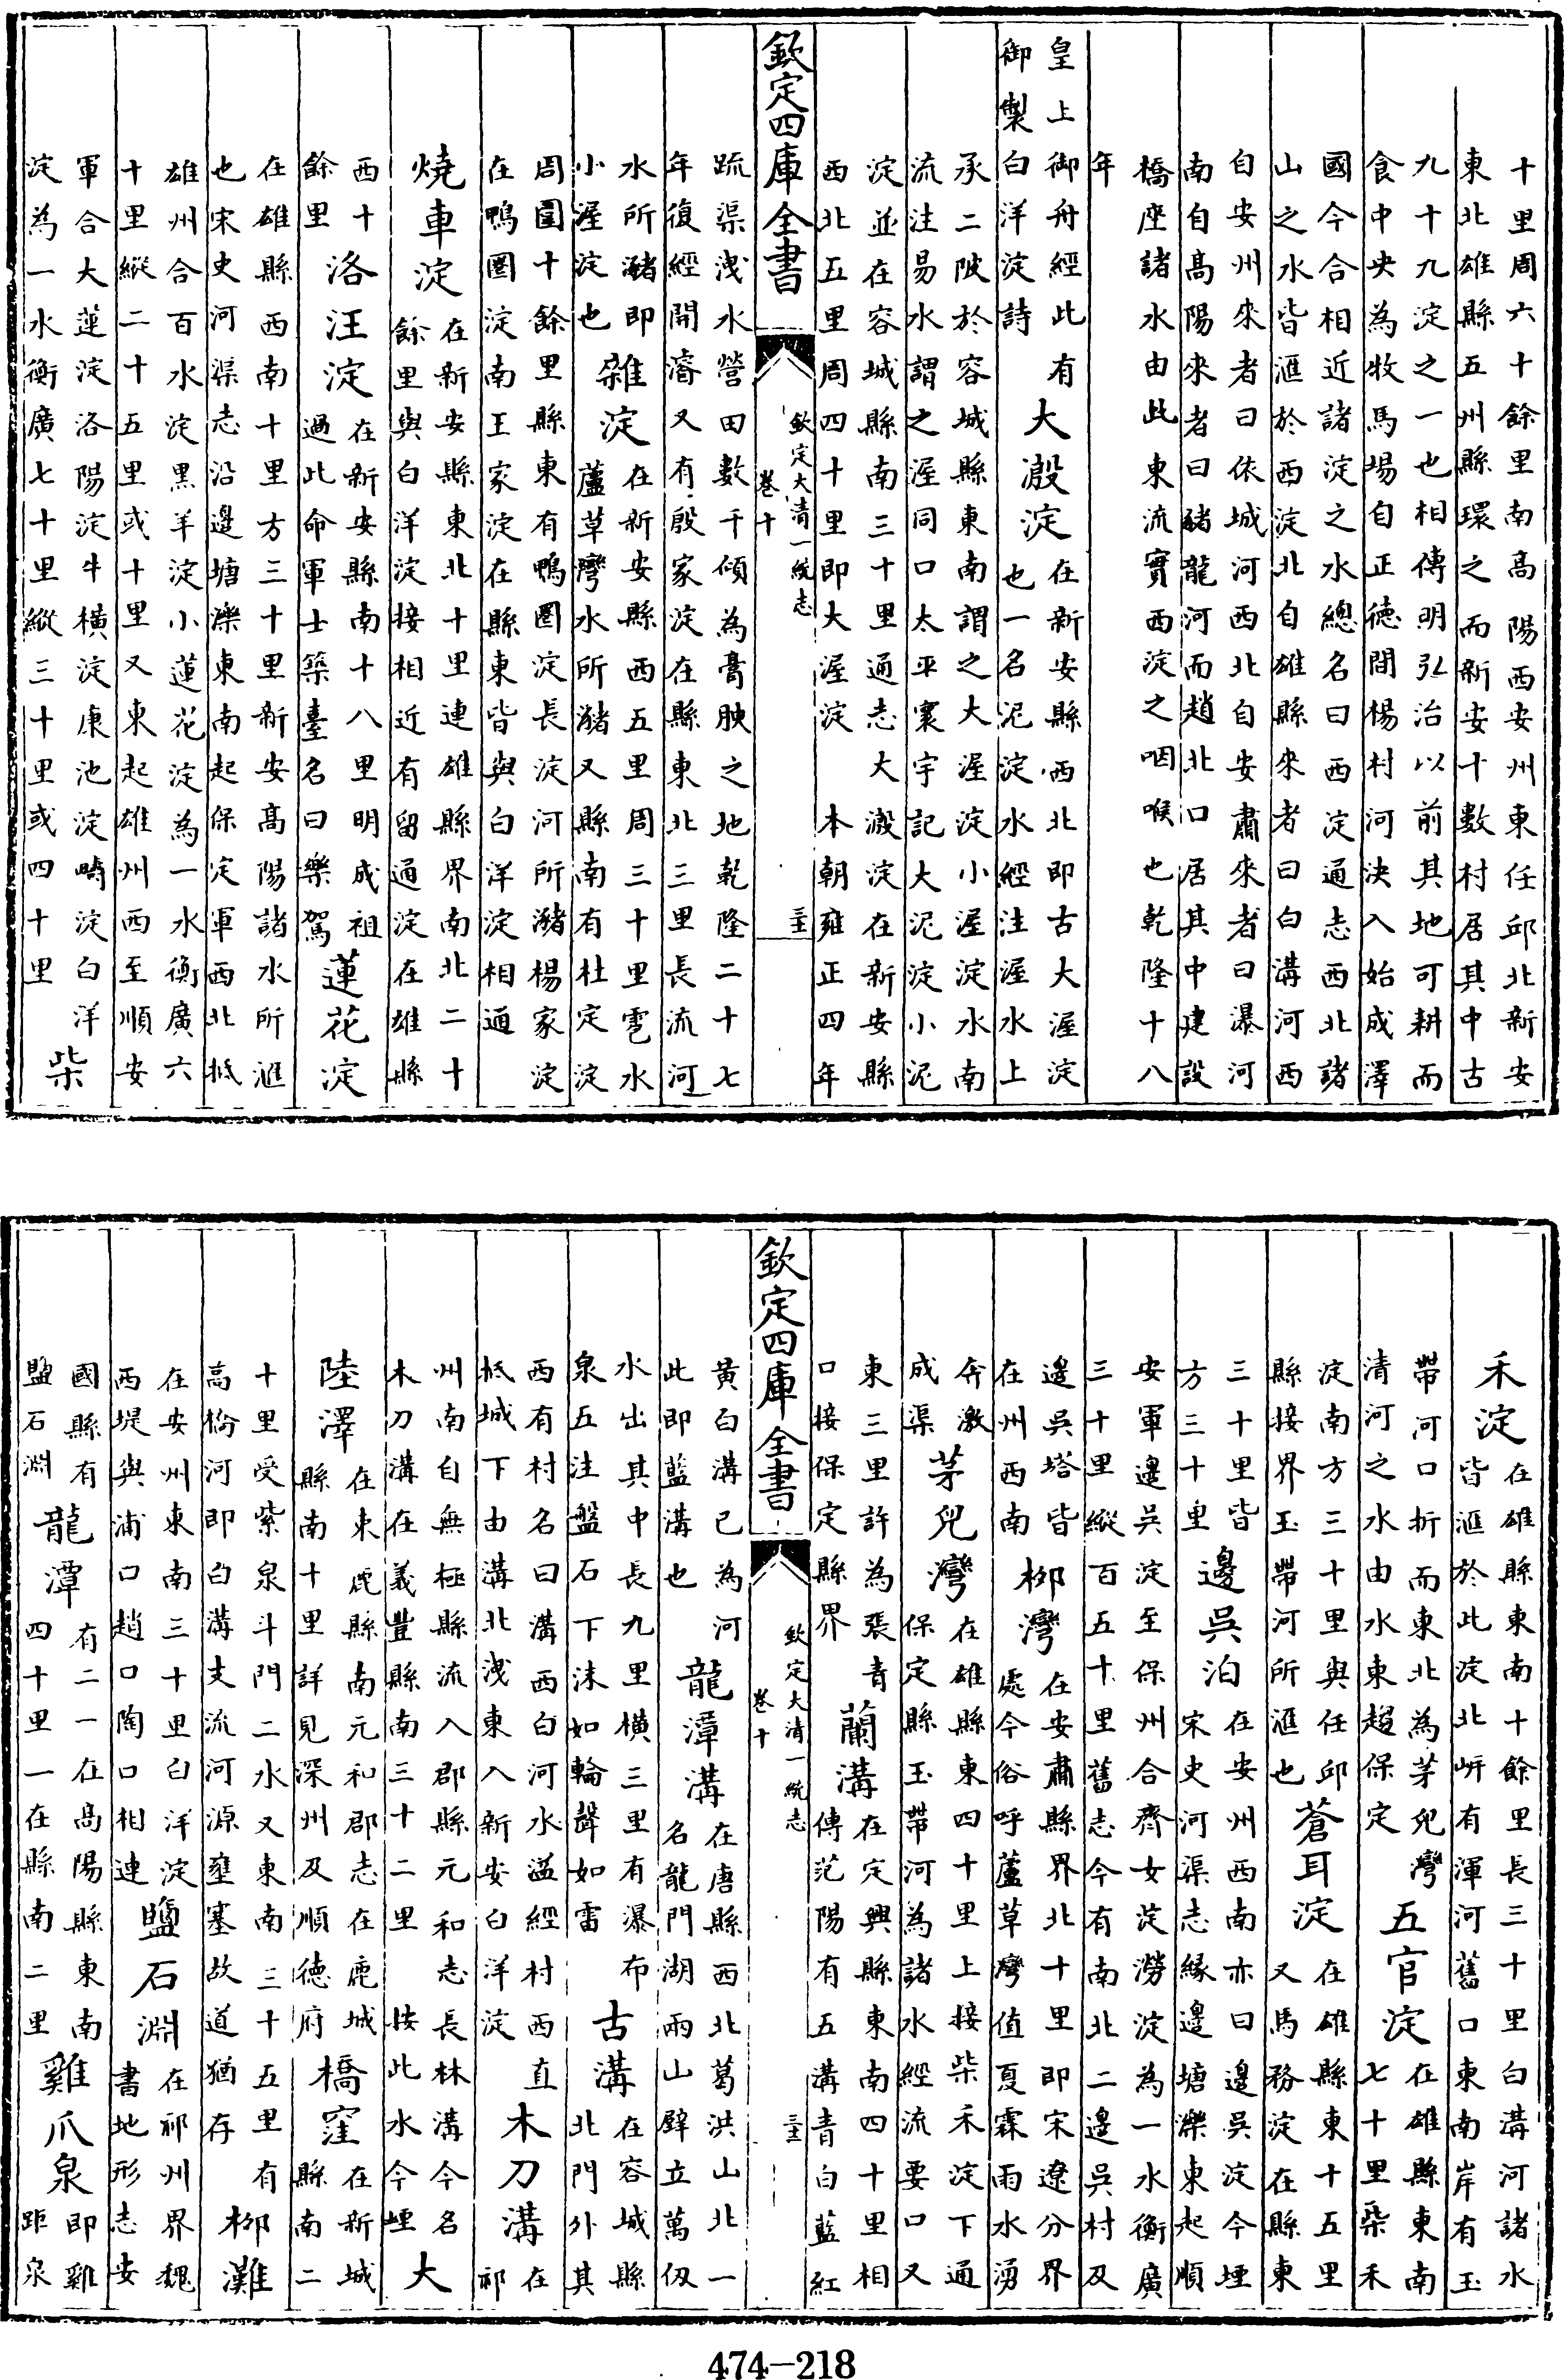 十里周六十餘里南高陽西安州東任邱北新安
東北雄縣五州縣環之而新安十數村居其中古
九十九淀之一也相傳明弘治以前其地可耕而
食中央為牧馬場自正德間楊村河決入始成澤
國今合相近諸淀之水總名曰西淀通志西北諸
山之水皆滙於西淀北自雄縣來者曰白溝河西
自安州來者曰依城河西北自安肅來者曰瀑河
南自高陽來者曰豬龍河而趙北口居其中建設
橋座諸水由此東流實西淀之咽喉也乾隆十八
年
皇上御舟經此有
御製白洋淀詩
大溵淀
在新安縣西北即古大渥淀
也一名泥淀水經注渥水上
承二陂於容城縣東南謂之大渥淀小渥淀水南
流注易水謂之渥同口太平寰宇記大泥淀小泥
淀並在容城縣南三十里通志大溵淀在新安縣
西北五里周四十里即大渥淀 本朝雍正四年
欽定四庫全書
欽定大清一統志
卷十
疏渠洩水營田數千傾為膏腴之地乾隆二十七
年復經開濬又有殷家淀在縣東北三里長流河
水所瀦即
小渥淀也
雜淀
在新安縣西五里周三十里雹水
蘆草灣水所瀦又縣南有杜定淀
周圍十餘里縣東有鴨圈淀長淀河所瀦楊家淀
在鴨圈淀南王家淀在縣東皆與白洋淀相通
燒車淀
在新安縣東北十里連雄縣界南北二十
餘里與白洋淀接相近有留通淀在雄縣
西十
餘里
洛汪淀
在新安縣南十八里明成祖
過此命軍士築臺名曰樂駕
蓮花淀
在雄縣西南十里方三十里新安高陽諸水所滙
也宋史河渠志沿邊塘濼東南起保定軍西北抵
雄州合百水淀黑羊淀小蓮花淀為一水衡廣六
十里縱二十五里或十里又東起雄州西至順安
軍合大蓮淀洛陽淀牛橫淀康池淀疇淀白洋
淀為一水衡廣七十里縱三十里或四十里
柴
禾淀
在雄縣東南十餘里長三十里白溝河諸水
皆滙於此淀北岍有渾河舊口東南岸有玉
帶河口折而東北為茅兒灣
清河之水由水東趨保定
五官淀
在雄縣東南
七十里柴禾
淀南方三十里與任邱
縣接界玉帶河所滙也
蒼耳淀
在雄縣東十五里
又馬務淀在縣東
三十里皆
方三十里
邊吳泊
在安州西南亦曰邊吳淀今堙
宋史河渠志緣邊塘濼東起順
安軍邊吳淀至保州合齊女淀勞淀為一水衡廣
三十里縱百五十里舊志今有南北二邊吳村及
邊吳塔皆
在州西南
栁灣
在安肅縣界北十里即宋遼分界
處今俗呼蘆草灣值夏霖雨水湧
奔激
成渠
茅兒灣
在雄縣東四十里上接柴禾淀下通
保定縣玉帶河為諸水經流要口又
東三里許為張青
口接保定縣界
蘭溝
在定興縣東南四十里相
傳范陽有五溝青白藍紅
欽定四庫全書
欽定大清一統志
卷十
黃白溝已為河
此即藍溝也
龍潭溝
在唐縣西北葛洪山北一
名龍門湖兩山壁立萬仭
水出其中長九里橫三里有瀑布
泉五注盤石下沫如輪聲如雷
古溝
在容城縣
北門外其
西有村名曰溝西白河水溢經村西直
抵城下由溝北洩東入新安白洋淀
木刀溝
在
祁
州南自無極縣流入郡縣元和志長林溝今名
木刀溝在義豐縣南三十二里 按此水今堙
大
陸澤
在束鹿縣南元和郡志在鹿城
縣南十里詳見深州及順德府
橋窪
在新城
縣南二
十里受紫泉斗門二水又東南三十五里有
高橋河即白溝支流河源壅塞故道猶存
栁灘
在安州東南三十里白洋淀
西堤與浦口趙口陶口相連
鹽石淵
在祁州界魏
書地形志安
國縣有
盬石淵
龍潭
有二一在高陽縣東南
四十里一在縣南二里
雞爪泉
即雞
距泉
474-218